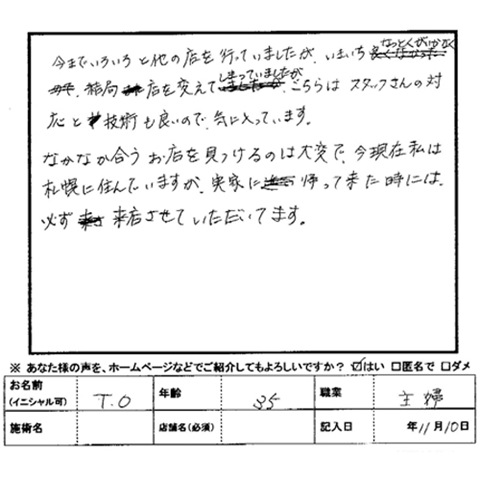 今までいろいろと他の店を行っていましたが、いまいちなっとくがいかなく
結局店を変えてしまっていましたが、こちらは スタッフさんの対
応と技術も良いので、気に入っています。
なかなか合うお店を見つけるのは大変で、今現在私は
札幌に住んでいますが、実家に帰って来た時には、
必ず来店させていただいてます。
※ あなた様の声を、ホームページなどでご紹介してもよろしいですか？ ☑はい ☐匿名で ☐ダメ
お名前 (イニシャル可) T.O 年齢 35 職業 主婦
施術名 店舗名(必須) 記入日 年11月10日